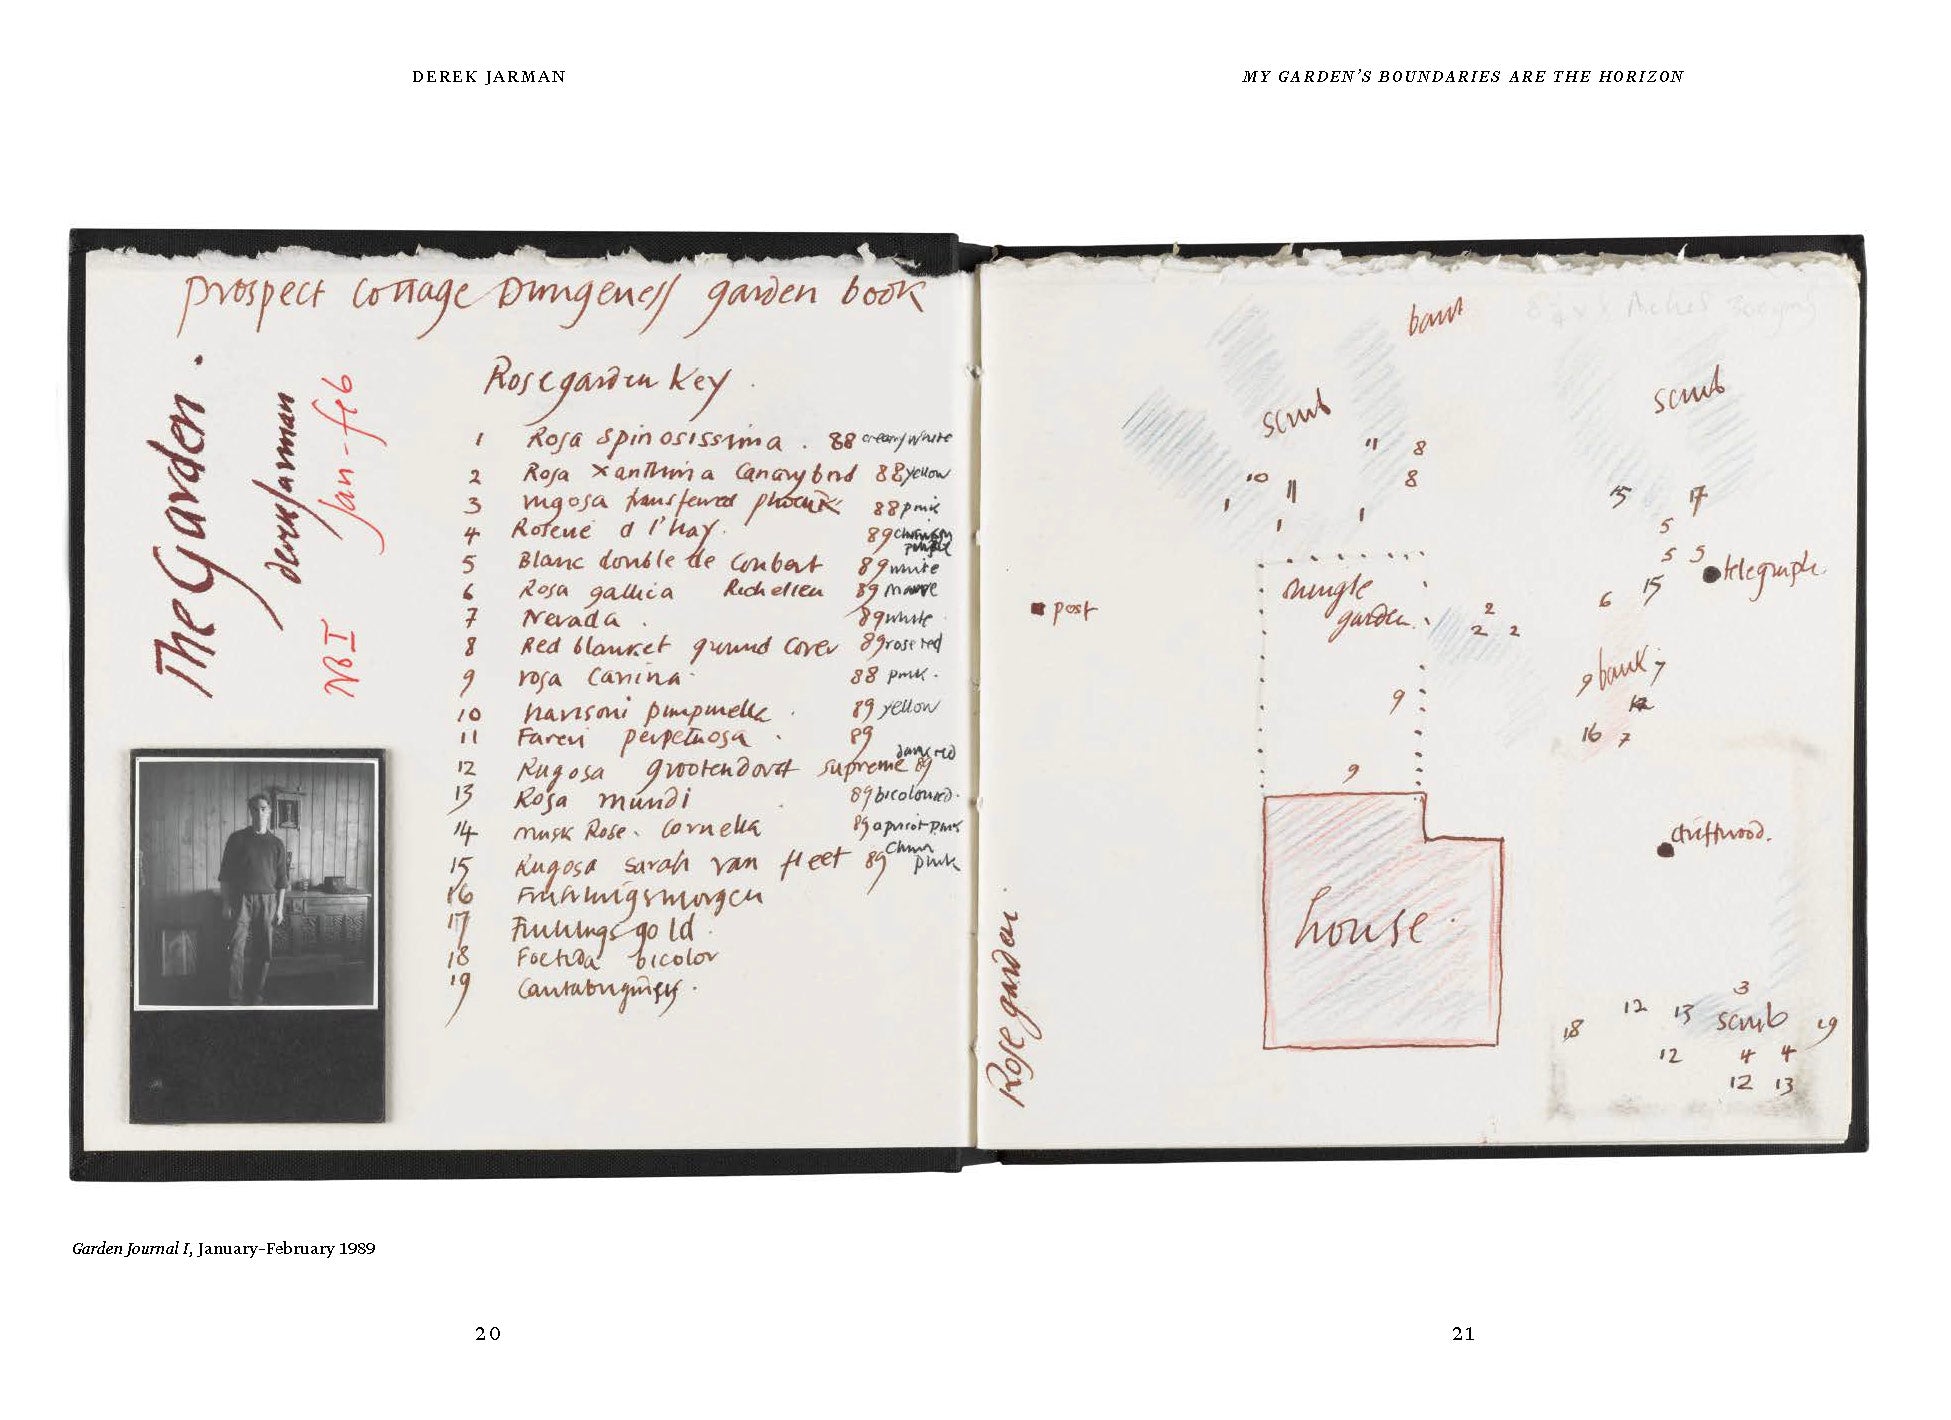 DEREK JARMAN
MY GARDEN'S BOUNDARIES ARE THE HORIZON
prospect cottage Dungeness garden book
The Garden.
derek jarman
Jan-feb
NO I
Rose garden Key.
1 Rosa spinosissima. 88 creamy white
2 Rosa xanthina Canary bird 88 yellow
3 rugosa transferred 88 pink
4 Roserie d l'hay. 89 purple
5 Blanc double de Coubert 89 white
6 Rosa gallica Richelieu 89 mauve
7 Nevada. 89 white
8 Red blanket ground cover 89 rose red
9 rosa canina. 88 pink.
10 harisoni pimpinella. 89 yellow
11 Fareri perpetuosa. 89
12 Rugosa grootendorst supreme 89 dark red
13 Rosa mundi 89 bicoloured.
14 musk Rose. Cornelia 89 apricot pink
15 Rugosa sarah van fleet 89 China pink
16 Fruhlingsmorgen
17 Fruhlingsgold.
18 Foetida bicolor
19
bank
scrub
scrub
11 8
10 11 8
1 1 1
15 17
5
5 5
telegraph.
15
6
jungle
garden.
post
2
2 2
9 bank 7
12
16 7
9
9
driftwood.
house.
Rose garden.
3
12 13 scrub
18 19
12 4 4
12 13
Garden Journal I, January–February 1989
20
21